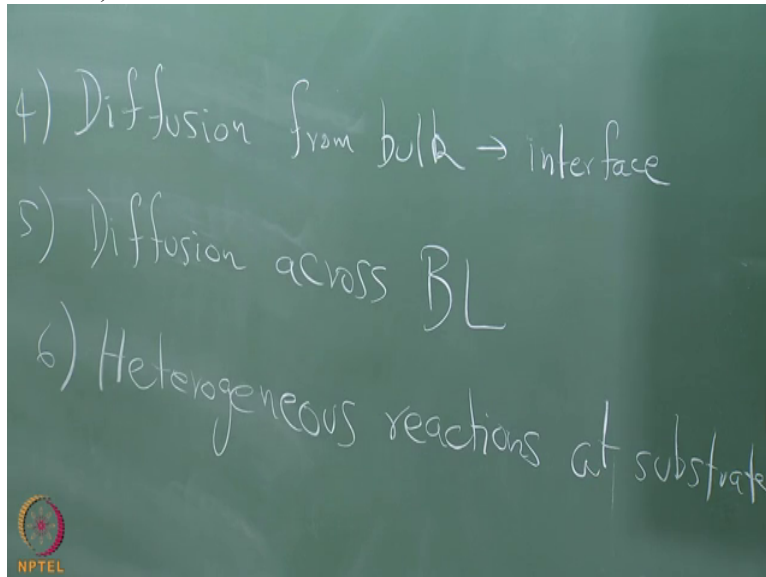 4) Diffusion from bulk → interface
5) Diffusion across BL
6) Heterogeneous reactions at substrate
NPTEL